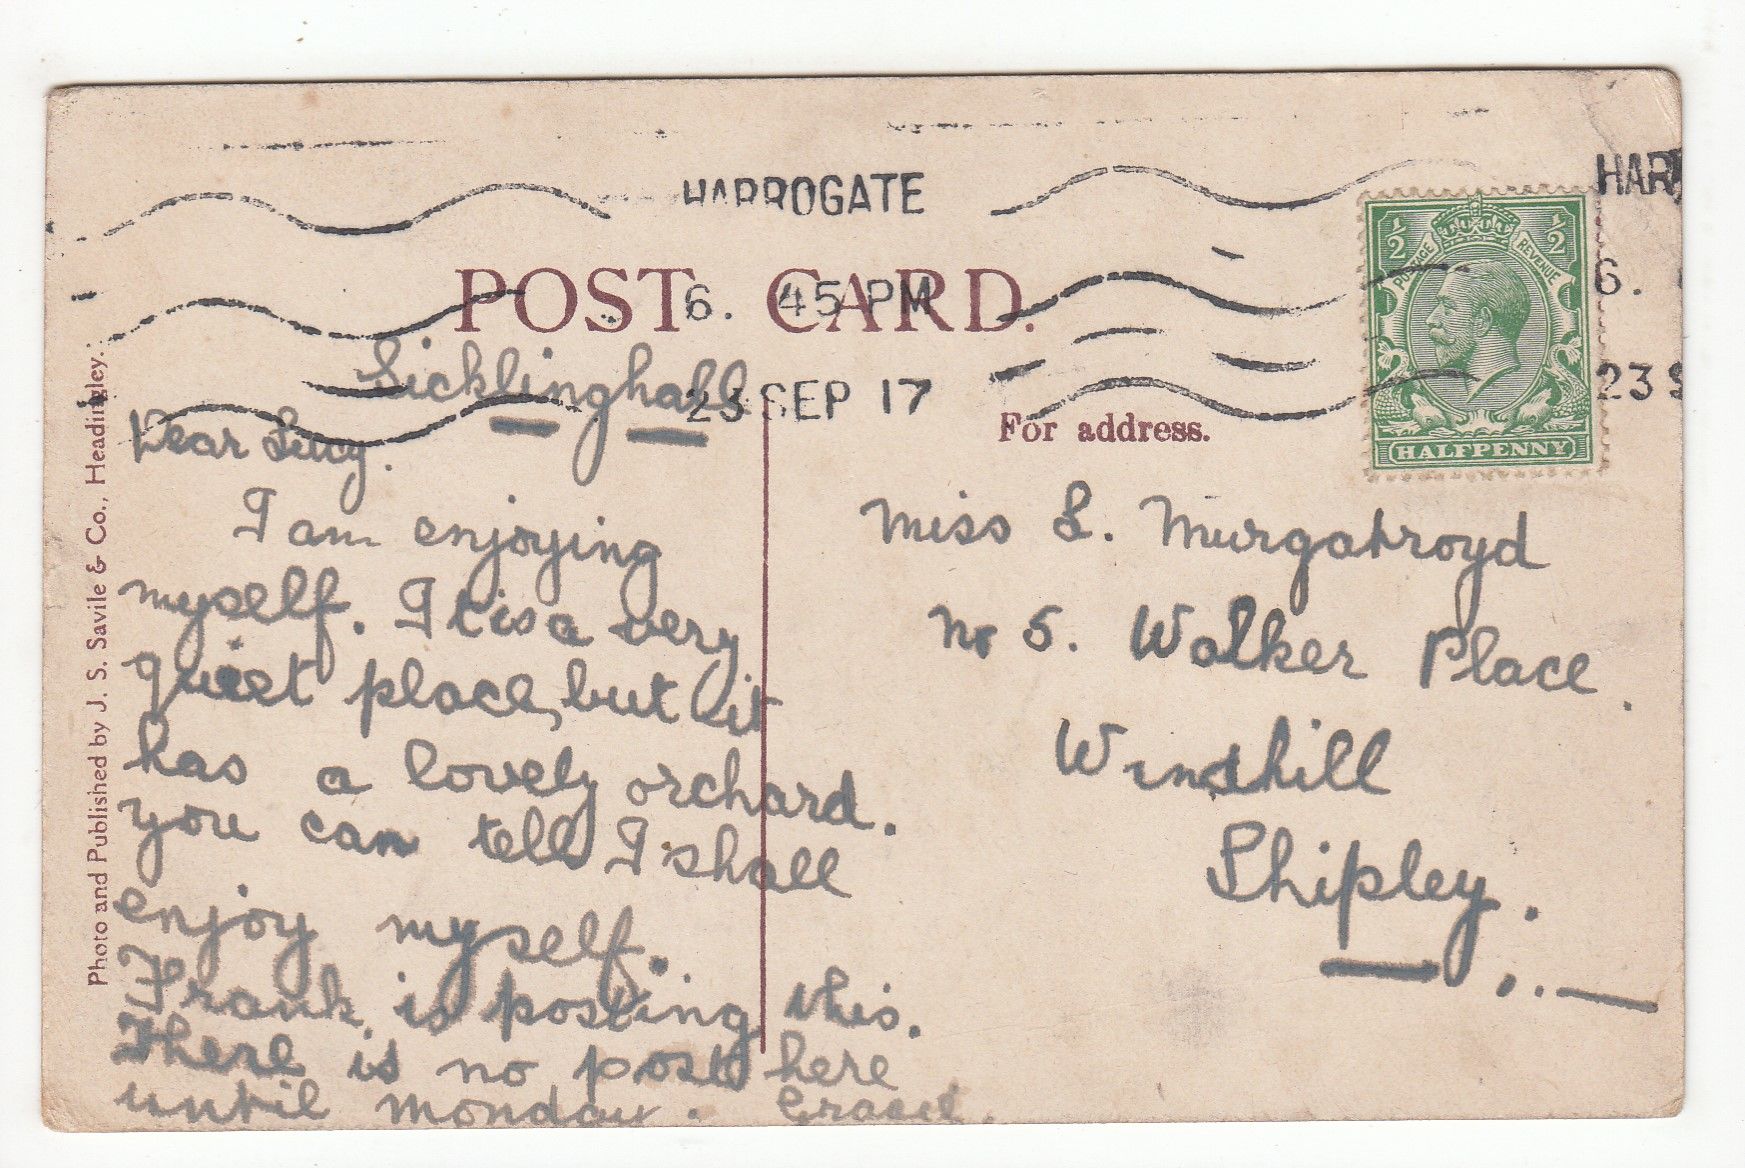 HARROGATE
HAR
POST CARD.
6. 45 PM
6.
23 SEP 17
23 S
1/2
1/2
POSTAGE
REVENUE
HALFPENNY
For address.
Sicklinghall
Dear Lucy.
I am enjoying
myself. It is a very
quiet place, but it
has a lovely orchard.
you can tell I shall
enjoy myself.
Frank. is posting this.
There is no post here
until monday. Grace.
Miss L. Murgatroyd
No 5. Walker Place.
Windhill
Shipley.
Photo and Published by J. S. Savile & Co., Headingley.